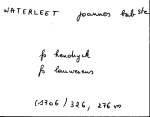 WATERLEET joannes bab Ste
fs hendryck
fs lauwerens
(1706 / 326, 276 vo